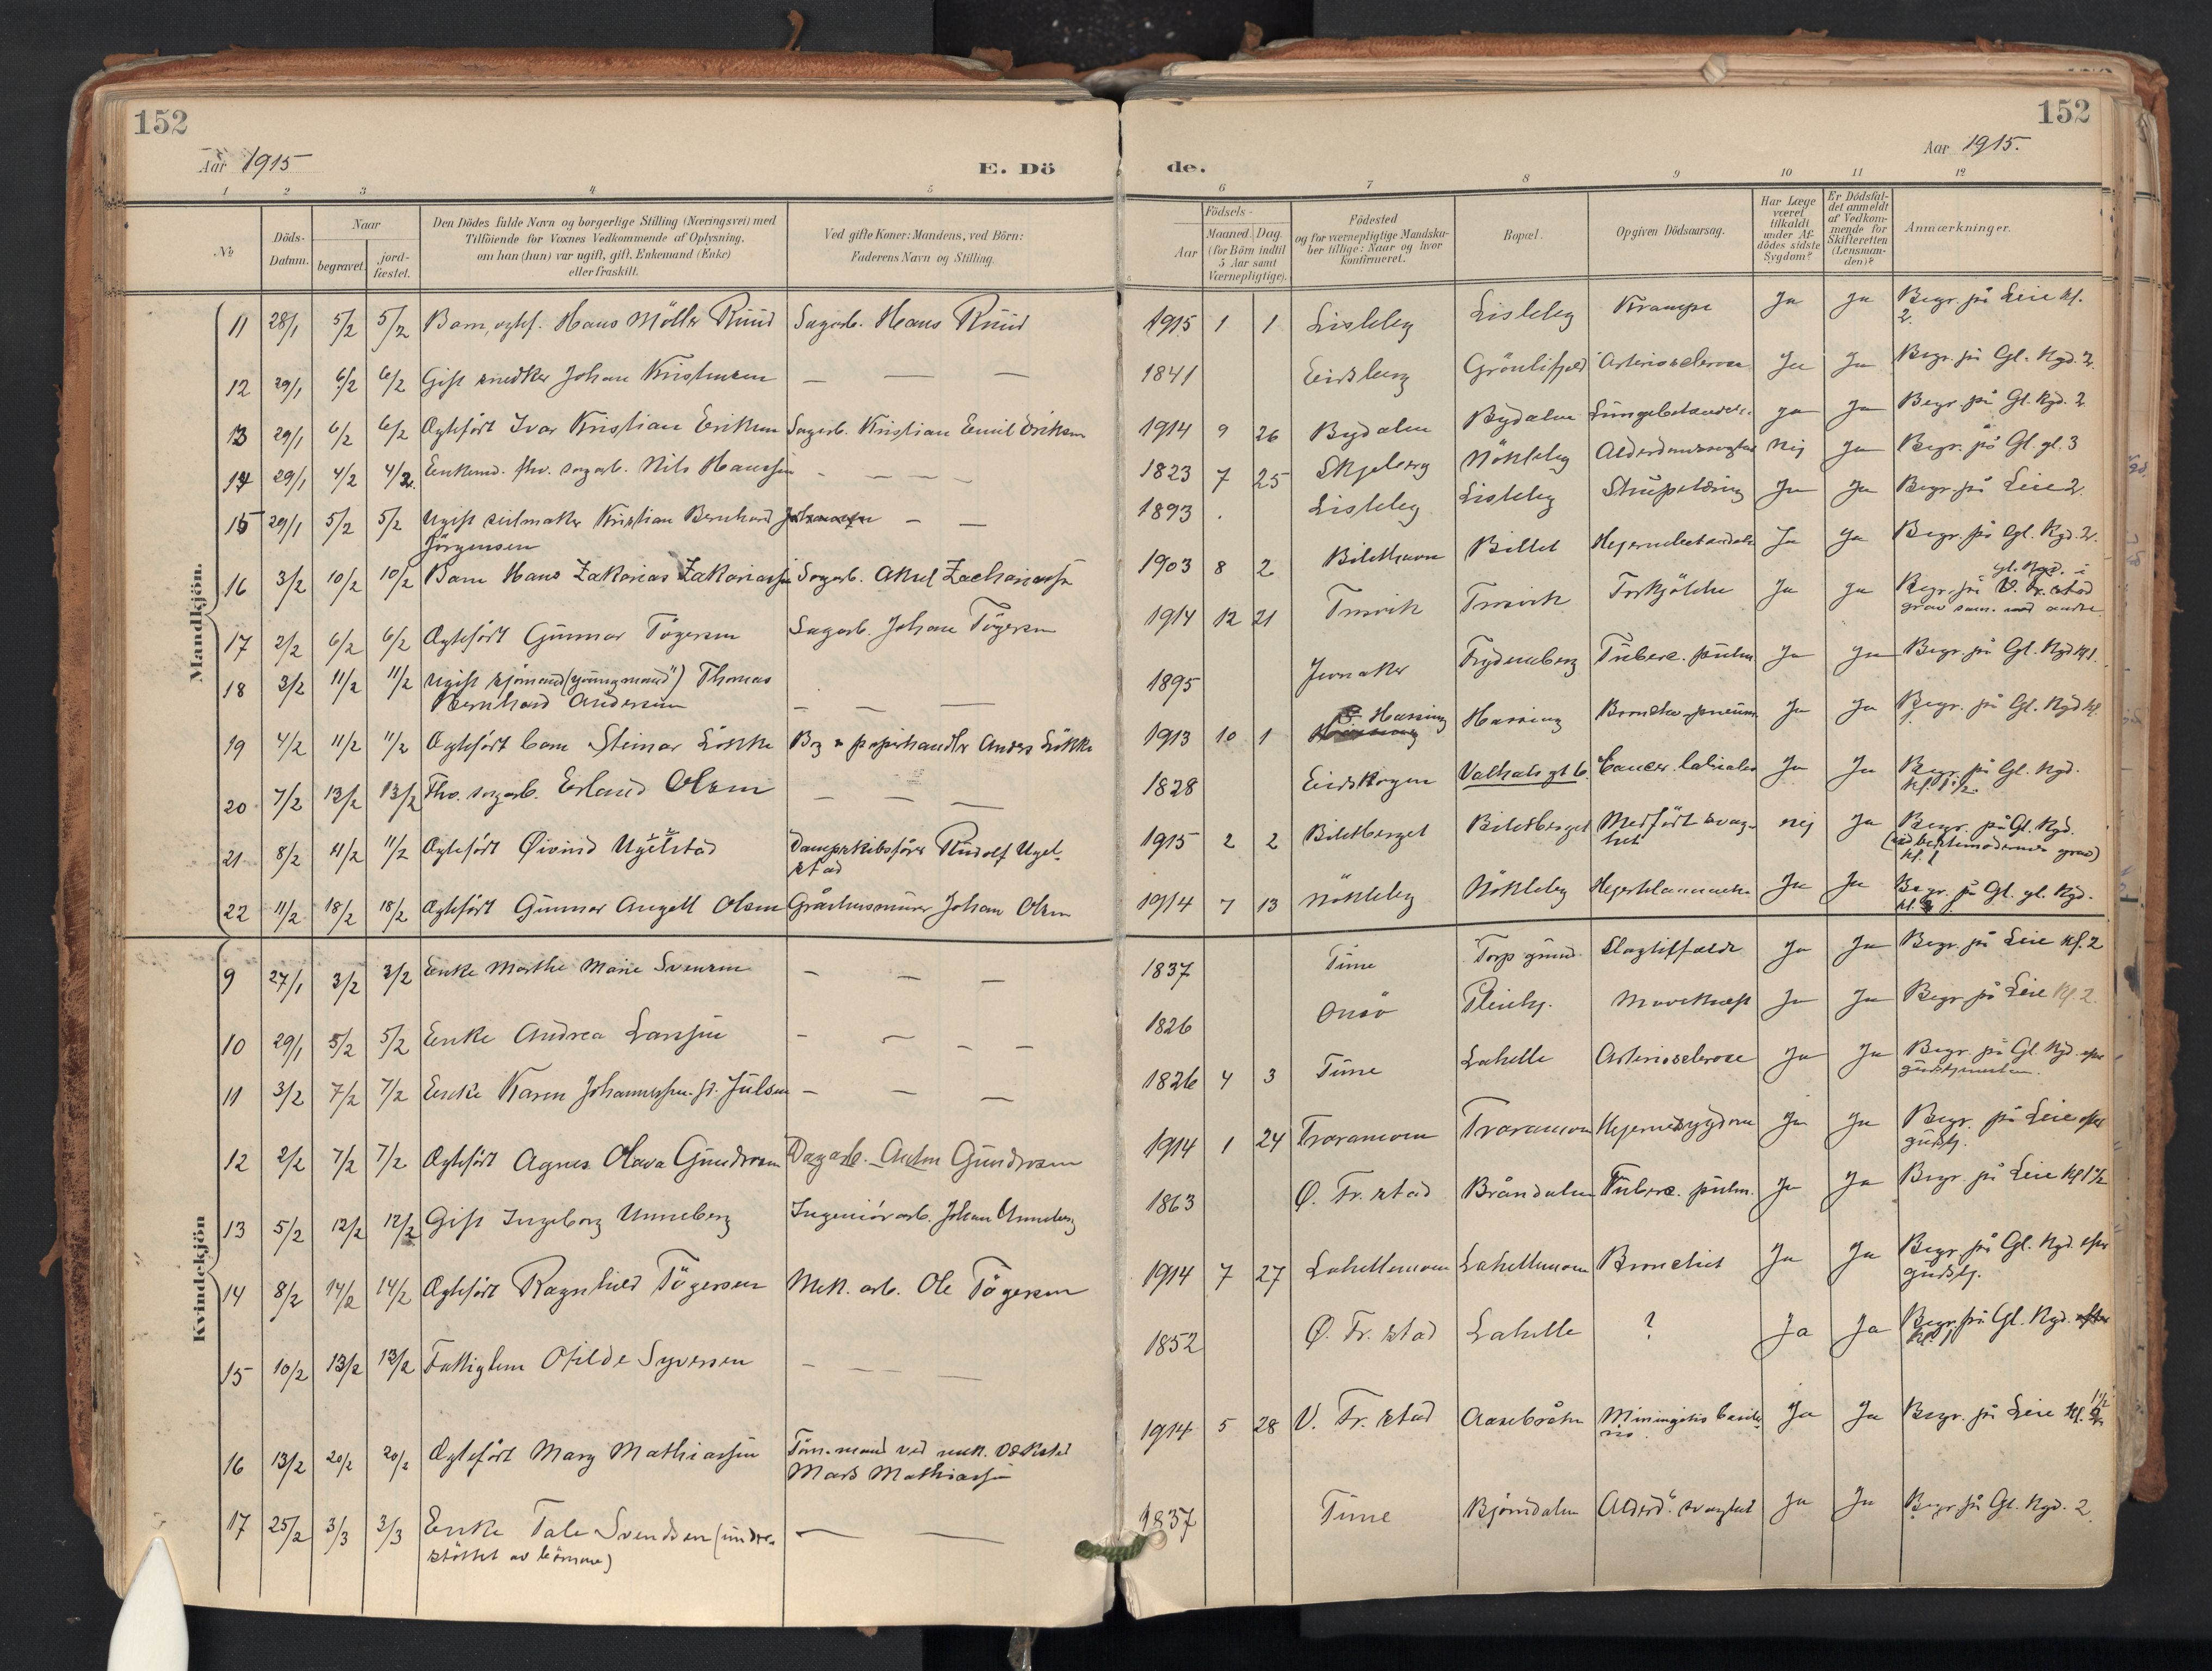 152
152
Aar 1915
E. Dö
de.
Aar 1915.
1 2 3 4 5 6 7 8 9 10 11 12
No
Döds-Datum.
Naar
begravet.
jord-fæstet.
Den Dödes fulde Navn og borgerlige Stilling (Næringsvei) med
Tilföiende for Voxnes Vedkommende af Oplysning,
om han (hun) var ugift, gift, Enkemand (Enke)
eller fraskilt.
Ved gifte Koner: Mandens, ved Börn:
Faderens Navn og Stilling.
Födsels-
Aar
Maaned. Dag.
(for Börn indtil
5 Aar samt
Værnepligtige).
Födested
og for værnepligtige Mandska-
ber tillige: Naar og hvor
konfirmeret.
Bopæl.
Opgiven Dödsaarsag.
Har Læge
været
tilkaldt
under Af-
dödes sidste
Sygdom?
Er Dödsfal-
det anmeldt
af Vedkom-
mende for
Skifteretten
(Lensman-
den)?
Anmærkninger.
Mandkjön.
11 28/1 5/2 5/2 Barn, ægtef. Hans Möller Ruud Sagarb. Hans Ruud 1915 1 1 Lisleby Lisleby Krampe Ja Ja Begr. på Leie kl.
2.
12 29/1 6/2 6/2 Gift snedker Johan Kristensen — — — 1841 Eidsberg Grönlifjeld Arteriosclerose Ja Ja Begr. på Gl. Kgd. 2.
13 29/1 6/2 6/2 Ægtefört Ivar Kristian Eriksen Sagarb. Kristian Emil Eriksen 1914 9 26 Bydalen Bydalen Lungebetændelse Ja Ja Begr. på Gl. Kgd. 2
14 29/1 4/2 4/2 Enkemd. fhv. sagarb. Nils Hanssen — — — — 1823 7 25 Skjeberg Nökleby Alderdomssvaghet Nej Ja Begr. på Gl. gl. 3
15 29/1 5/2 5/2 Ugift seilmaker Kristian Bernhard Johansen — —
Jörgensen 1893 Lisleby Lisleby Strupetæring Ja Ja Begr. på Leie 2.
16 3/2 10/2 10/2 Barn Hans Zakarias Zakariassen Sagarb. Aksel Zachariassen 1903 8 2 Bilethavn Billet Hjernebetændelse Ja Ja Begr. på Gl. Kgd. 2.
17 2/2 6/2 6/2 Ægtefört Gunnar Tögersen Sagarb. Johan Tögersen 1914 12 21 Trosvik Trosvik Forkjölelse Ja Ja Begr. på gl. Kgd. i
grav sam. med andre
18 3/2 11/2 11/2 Ugift sjömand ("youngmand") Thomas
Bernhard Andersen — — — 1895 Jevnaker Frydenberg Tuberc. pulm Ja Ja Begr. på Gl. Kgd kl 1.
19 4/2 11/2 11/2 Ægtefört barn Steinar Lökke Bog & papirhandler Anders Lökke 1913 10 1 Hassing Hassing Broncho-pneum Ja Ja Begr. på Gl. Kgd kl.
20 7/2 13/2 13/2 Fhv. sagarb. Erland Olsen — — — 1828 Eidskogen Valhals gt 6. Cancer labialis Ja Ja Begr. på Gl. Kgd.
kl. 1 1/2.
21 8/2 11/2 11/2 Ægtefört Øivind Ugelstad Dampskibsförer Rudolf Ugel-
stad 1915 2 2 Biletberget Biletberget Medfört svag-
het nej Ja Begr. på Gl. Kgd.
(ved bestemoderens grav)
kl. 1
22 11/2 18/2 18/2 Ægtefört Gunnar Angell Olsen Gråstensmurer Johan Olsen 1914 7 13 Nökleby Nökleby Hjerteslammelse Ja Ja Begr. på Gl. gl. Kgd.
Kvindekjön
9 27/1 3/2 3/2 Enke Marthe Marie Svensen — — — 1837 Tune Torp grund Slagtilfælde Ja Ja Begr. på Leie kl. 2
10 29/1 5/2 5/2 Enke Andrea Larssen — — — — 1826 Onsö Pleiehj. Mavekræft Ja Ja Begr. på Leie kl. 2.
11 3/2 7/2 7/2 Enke Karen Johannessen f. Julsen — — — 1826 4 3 Tune Lahelle Arteriosclerose Ja Ja Begr. på Gl. Kgd. efter
gudstjenesten.
12 2/2 7/2 7/2 Ægtefört Agnes Olava Gundrosen Dagarb. Anton Gundrosen 1914 1 24 Traramoen Traramoen Hjernesygdom Ja Ja Begr. på Leie efter
gudstj.
13 5/2 12/2 12/2 Gift Ingeborg Unneberg Ingeniörarb. Johan Unneberg 1863 Ø. Fr. stad Brøndalen Tuberc. pulm. Ja Ja Begr. på Leie kl 1 1/2
14 8/2 14/2 14/2 Ægtefört Ragnhild Tögersen Mek. arb. Ole Tögersen 1914 7 27 Lahellemoen Lahellemoen Bronchit Ja Ja Begr. på Gl. Kgd. efter
gudstj.
15 10/2 13/2 13/2 Fattiglem Otilde Syversen — — — 1852 Ø. Fr. stad Lahelle ? Ja Ja Begr. på Gl. Kgd. efter
kl. 1
16 13/2 20/2 20/2 Ægtefört Mary Mathiassen Töm.mand ved mek. Værksted
Mads Mathiassen 1914 5 28 V. Fr. stad Aasebråten Miningitis basila-
ris Ja Ja Begr. på Leie kl. 1 1/2
17 25/2 3/3 3/3 Enke Tale Svendsen (under-
stöttet av börnene) — — 1837 Tune Bjørndalen Alderd. svaghet Ja Ja Begr. på Gl. Kgd. 2.